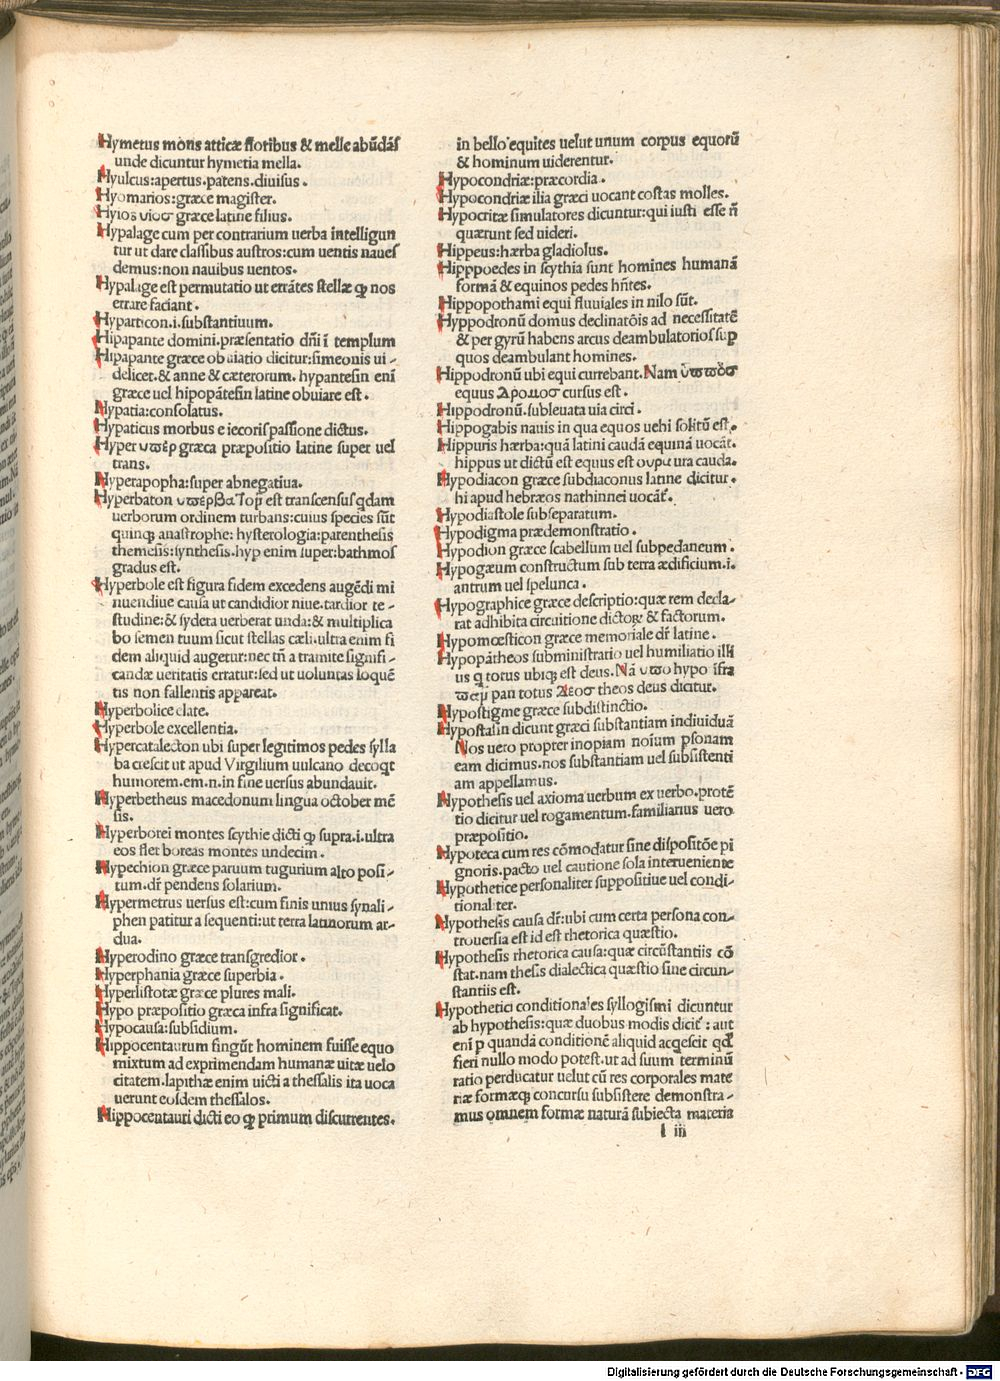 Hymetus mons atticæ floribus & melle abūdās
unde dicuntur hymetia mella.
Hyulcus:apertus.patens.diuisus.
Hyomarios:græce magister.
Hyios υιοσ græce latine filius.
Hypalage cum per contrarium uerba intelligun
tur ut dare classibus austros:cum uentis naues
demus:non nauibus uentos.
Hypalage est permutatio ut errātes stellæ ꝙ nos
errare faciant.
Hyparticon.i.substantiuum.
Hipapante domini.præsentatio dñi ī templum
Hipapante græce obuiatio dicitur:simeonis ui-
delicet.& anne & cæterorum. hypantesin enī
græce uel hipopātesin latine obuiare est.
Hypatia:consolatus.
Hypaticus morbus e iecoris passione dictus.
Hyper υπέρ græca præpositio latine super uel
trans.
Hyperapopha:super abnegatiua.
Hyperbaton est transcensus qdam
uerborum ordinem turbans:cuius species sūt
quinqꝫ anastrophe: hysterologia:parenthesis
themesis:synthesis.hyp enim super:bathmos
gradus est.
Hyperbole est figura fidem excedens augēdi mi
nuendiue causa ut candidior niue.tardior te-
studine:& sydera uerberat unda:& multiplica
bo semen tuum sicut stellas cæli.ultra enim fi
dem aliquid augetur:nec tñ a tramite signifi-
candæ ueritatis erratur:sed ut uoluntas loquē
tis non fallentis appareat.
Hyperbolice elate.
Hyperbole excellentia.
Hypercatalecton ubi super legitimos pedes sylla
ba crescit ut apud Virgilium uulcano decoqt
humorem.em.n.in fine uersus abundauit.
Hyperbetheus macedonum lingua october mē
sis.
Hyperborei montes scythie dicti ꝙ supra.i.ultra
eos flet boreas montes undecim.
Hypechion græce paruum tugurium alto posi-
tum.dr̄ pendens solarium.
Hypermetrus uersus est:cum finis unius synali-
phen patitur a sequenti:ut terra latinorum ar-
dua.
Hyperodino græce transgredior.
Hyperphania græce superbia.
Hyperlistotæ græce plures mali.
Hypo præpositio græca infra significat.
Hypocausa:subsidium.
Hippocentaurum fingūt hominem fuisse equo
mixtum ad exprimendam humanæ uitæ uelo
citatem.lapithæ enim uicti a thessalis ita uoca
uerunt eosdem thessalos.
Hippocentauri dicti eo ꝙ primum discurrentes.
in bello equites uelut unum corpus equorū
& hominum uiderentur.
Hypocondriæ:præcordia.
Hypocondriæ ilia græci uocant costas molles.
Hypocritæ simulatores dicuntur:qui iusti esse ñ
quærunt sed uideri.
Hippeus:hærba gladiolus.
Hipppoedes in scythia sunt homines humanā
formā & equinos pedes hñtes.
Hippopothami equi fluuiales in nilo sūt.
Hyppodronū domus declinatōis ad necessitatē
& per gyrū habens arcus deambulatorios sup
quos deambulant homines.
Hippodronū ubi equi currebant.Nam
equus cursus est.
Hippodronū.subleuata uia circi.
Hippogabis nauis in qua equos uehi solitū est.
Hippuris hærba:quā latini caudā equinā uocāt.
hippus ut dictū est equus est ουρα ura cauda.
Hypodiacon græce subdiaconus latine dicitur.
hi apud hebræos nathinnei uocāt.
Hypodiastole subseparatum.
Hypodigma prædemonstratio.
Hypodion græce scabellum uel subpedaneum.
Hypogæum constructum sub terra ædificium.i.
antrum uel spelunca.
Hypographice græce descriptio:quæ rem decla-
rat adhibita circuitione dictoꝝ & factorum.
Hypomœsticon græce memoriale dr̄ latine.
Hypopātheos subministratio uel humiliatio illi
us q totus ubiqꝫ est deus.Nā υπο hypo īfra
pan totus θεοσ theos deus dicitur.
Hypostigme græce subdistinctio.
Hypostasin dicunt græci substantiam indiuiduā
Nos uero propter inopiam noīum psonam
eam dicimus.nos substantiam uel subsistenti
am appellamus.
Hypothesis uel axioma uerbum ex uerbo.protē
tio dicitur uel rogamentum.familiarius uero
præpositio.
Hypoteca cum res cōmodatur sine dispositōe pi
gnoris.pacto uel cautione sola interueniente
Hypothetice personaliter suppositiue uel condi-
tionaliter.
Hypothesis causa dr̄:ubi cum certa persona con-
trouersia est id est rhetorica quæstio.
Hypothesis rhetorica causa:quæ circūstantiis cō
stat.nam thesis dialectica quæstio sine circun-
stantiis est.
Hypothetici conditionales syllogismi dicuntur
ab hypothesis:quæ duobus modis dicit̄: aut
enī p quandā conditionē aliquid acqescit qđ
fieri nullo modo potest.ut ad suum terminū
ratio perducatur uelut cū res corporales mate
riæ formæqꝫ concursu subsistere demonstra-
mus omnem formæ naturā subiecta materia
l iii
Digitalisierung gefördert durch die Deutsche Forschungsgemeinschaft - DFG